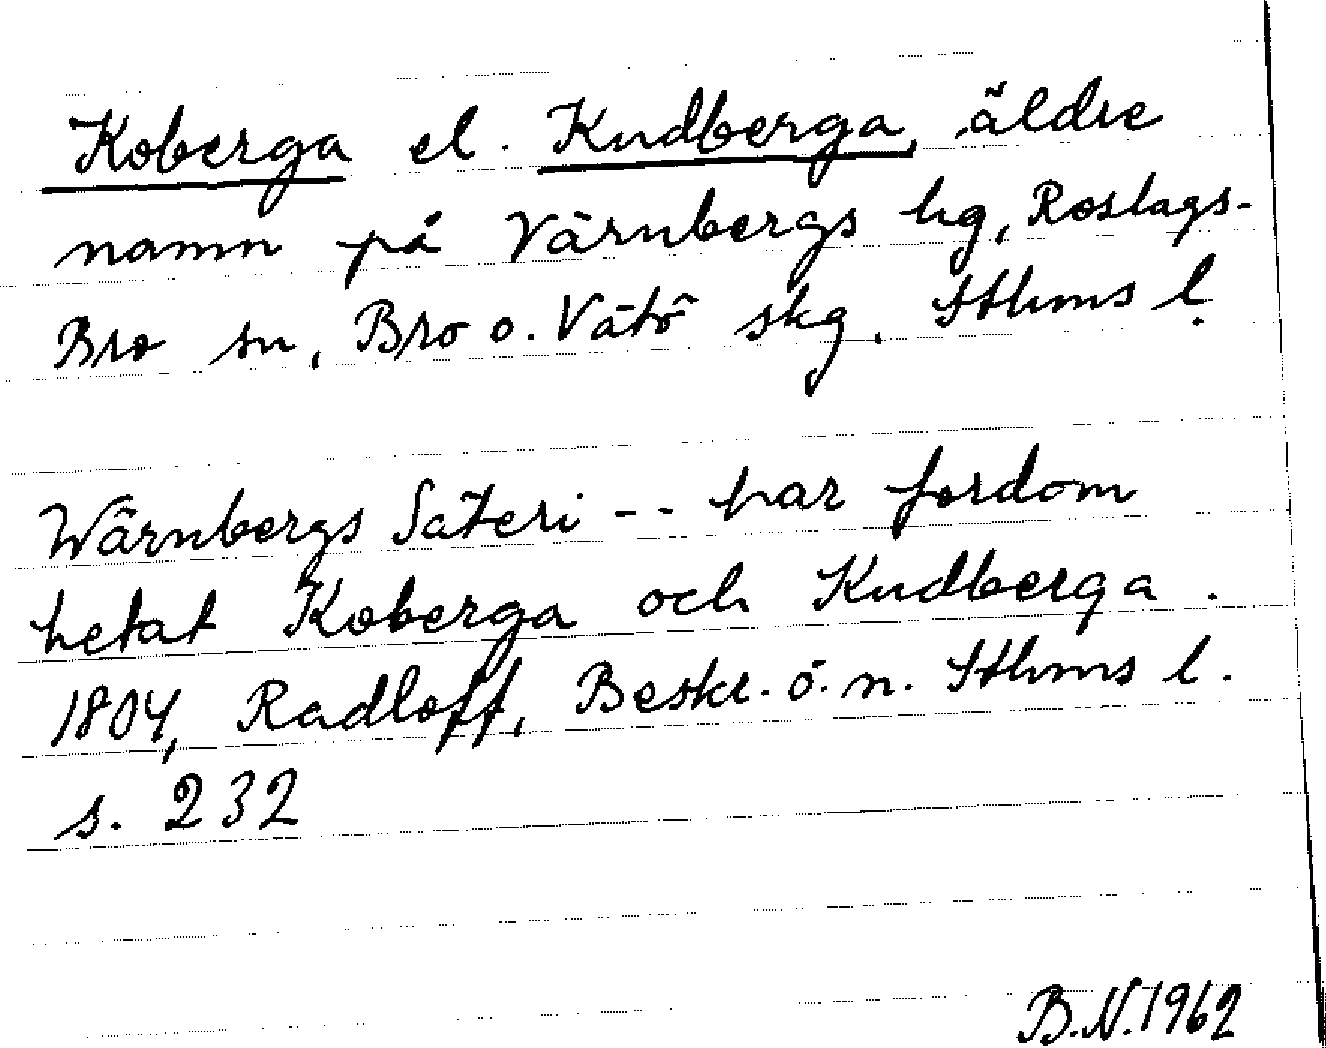 Koberga el. Kudberga, äldre
namn på Värnbergs hg, Roslags-
Bro sn, Bro o. Vätö skg, Sthms l.
Wärnbergs Säteri -- har fordom
hetat Koberga och Kudberga.
1804, Radloff, Beskr. ö. n. Sthms l.
s. 232
B.N. 1962